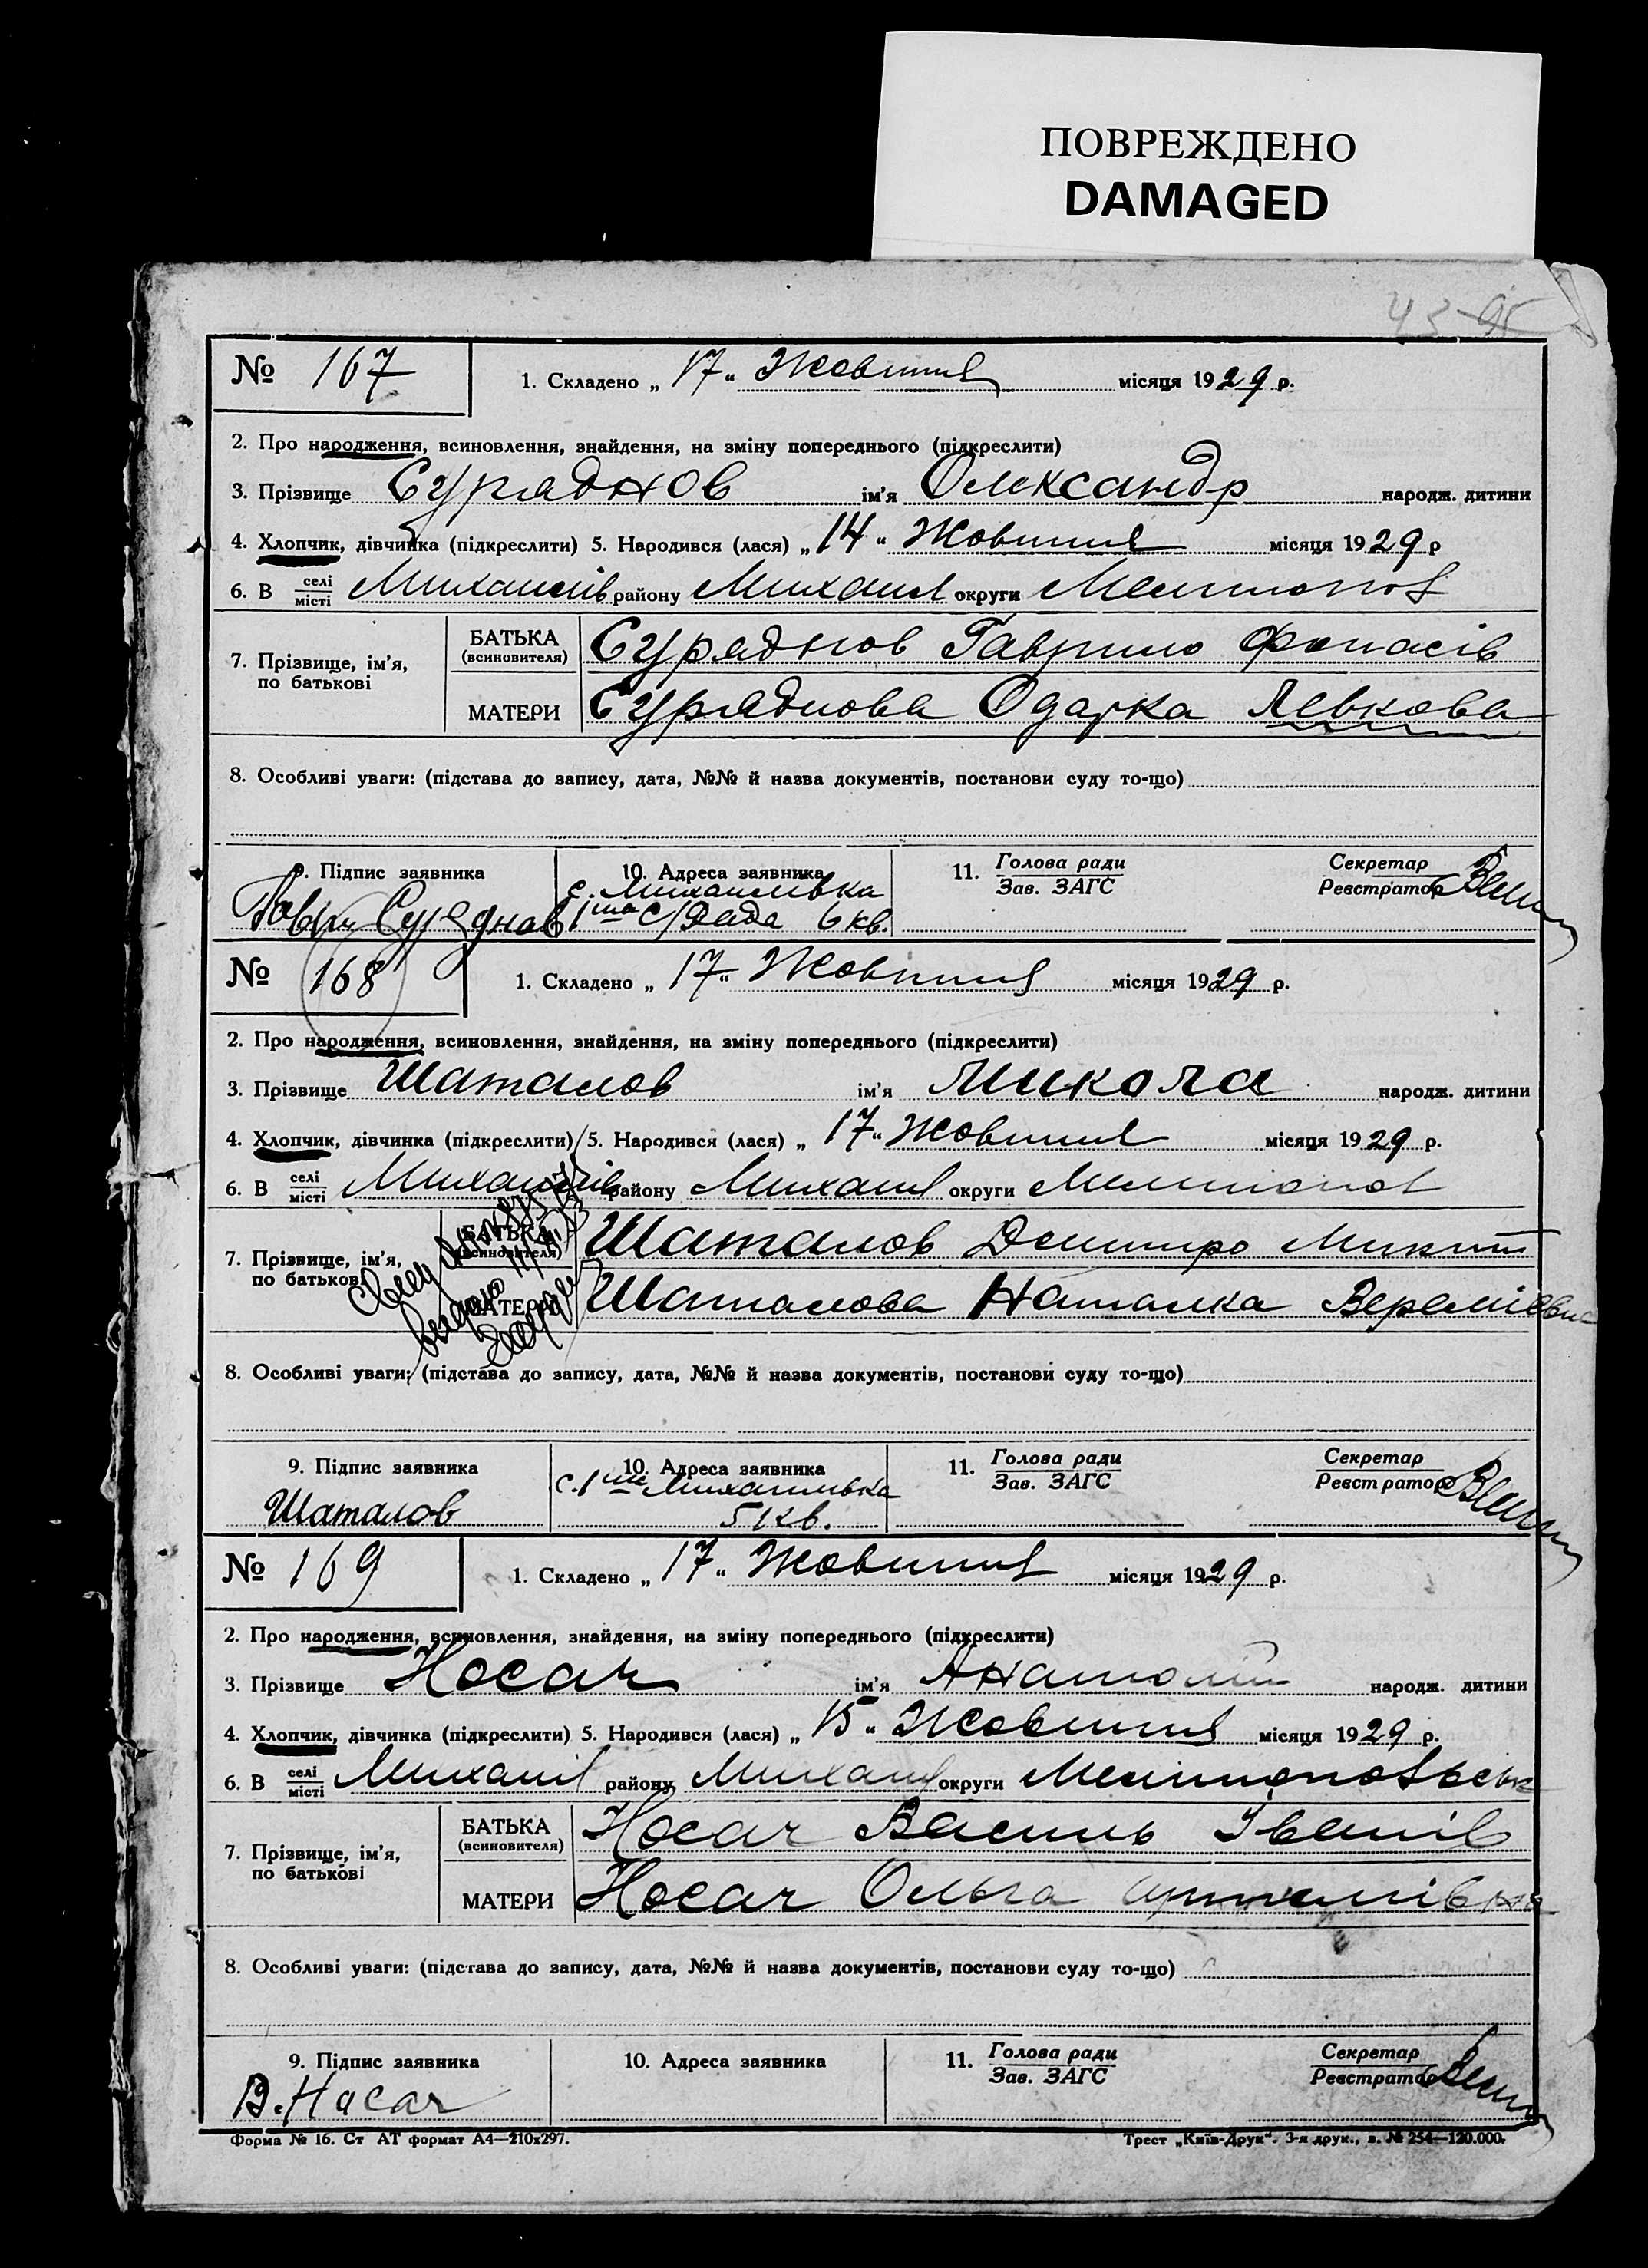 ПОВРЕЖДЕНО
DAMAGED
№ 167 1. Складено „ 17 " Жовтня місяця 1929 р.
2. Про народження, всиновлення, знайдення, на зміну попереднього (підкреслити)
3. Прізвище Суряднов ім'я Олександр народж. дитини
4. Хлопчик, дівчинка (підкреслити) 5. Народився (лася) „ 14 " Жовтня місяця 1929 р
6. В селі місті Михайлів району Михайл округи Мелитопол
7. Прізвище, ім'я, по батькові
БАТЬКА (всиновителя) Суряднов Гаврило Фонасів
МАТЕРИ Суряднова Одарка Левкова
8. Особливі уваги: (підстава до запису, дата, №№ й назва документів, постанови суду то-що)
9. Підпис заявника 10. Адреса заявника 11. Голова ради Зав. ЗАГС Секретар Реєстратор
с. Михайлівка
1ша с/Рада 6 кв.
№ 168 1. Складено „ 17 " Жовтня місяця 1929 р.
2. Про народження, всиновлення, знайдення, на зміну попереднього (підкреслити)
3. Прізвище Шаталов ім'я Микола народж. дитини
4. Хлопчик, дівчинка (підкреслити) 5. Народився (лася) „ 17 " Жовтня місяця 1929 р.
6. В селі місті Михайлів району Михайл округи Мелитопол
7. Прізвище, ім'я, по батькові
БАТЬКА (всиновителя) Шаталов Демитро Микит
МАТЕРИ Шаталова Наталка Веремієвна
8. Особливі уваги: (підстава до запису, дата, №№ й назва документів, постанови суду то-що)
9. Підпис заявника 10. Адреса заявника 11. Голова ради Зав. ЗАГС Секретар Реєстратор
Шаталов с. 1ша Михайлівка
5 кв.
№ 169 1. Складено „ 17 " Жовтня місяця 1929 р.
2. Про народження, всиновлення, знайдення, на зміну попереднього (підкреслити)
3. Прізвище Носач ім'я Анатолій народж. дитини
4. Хлопчик, дівчинка (підкреслити) 5. Народився (лася) „ 15 " Жовтня місяця 1929 р.
6. В селі місті Михайл району Михайл округи Мелитопольськ
7. Прізвище, ім'я, по батькові
БАТЬКА (всиновителя) Носач Василь Іванів
МАТЕРИ Носач Ольга
8. Особливі уваги: (підстава до запису, дата, №№ й назва документів, постанови суду то-що)
9. Підпис заявника 10. Адреса заявника 11. Голова ради Зав. ЗАГС Секретар Реєстратор
В. Насач
Форма № 16. Ст АТ формат А4—210x297. Трест „Київ-Друк". 3-я друк., з. № 254—120.000.